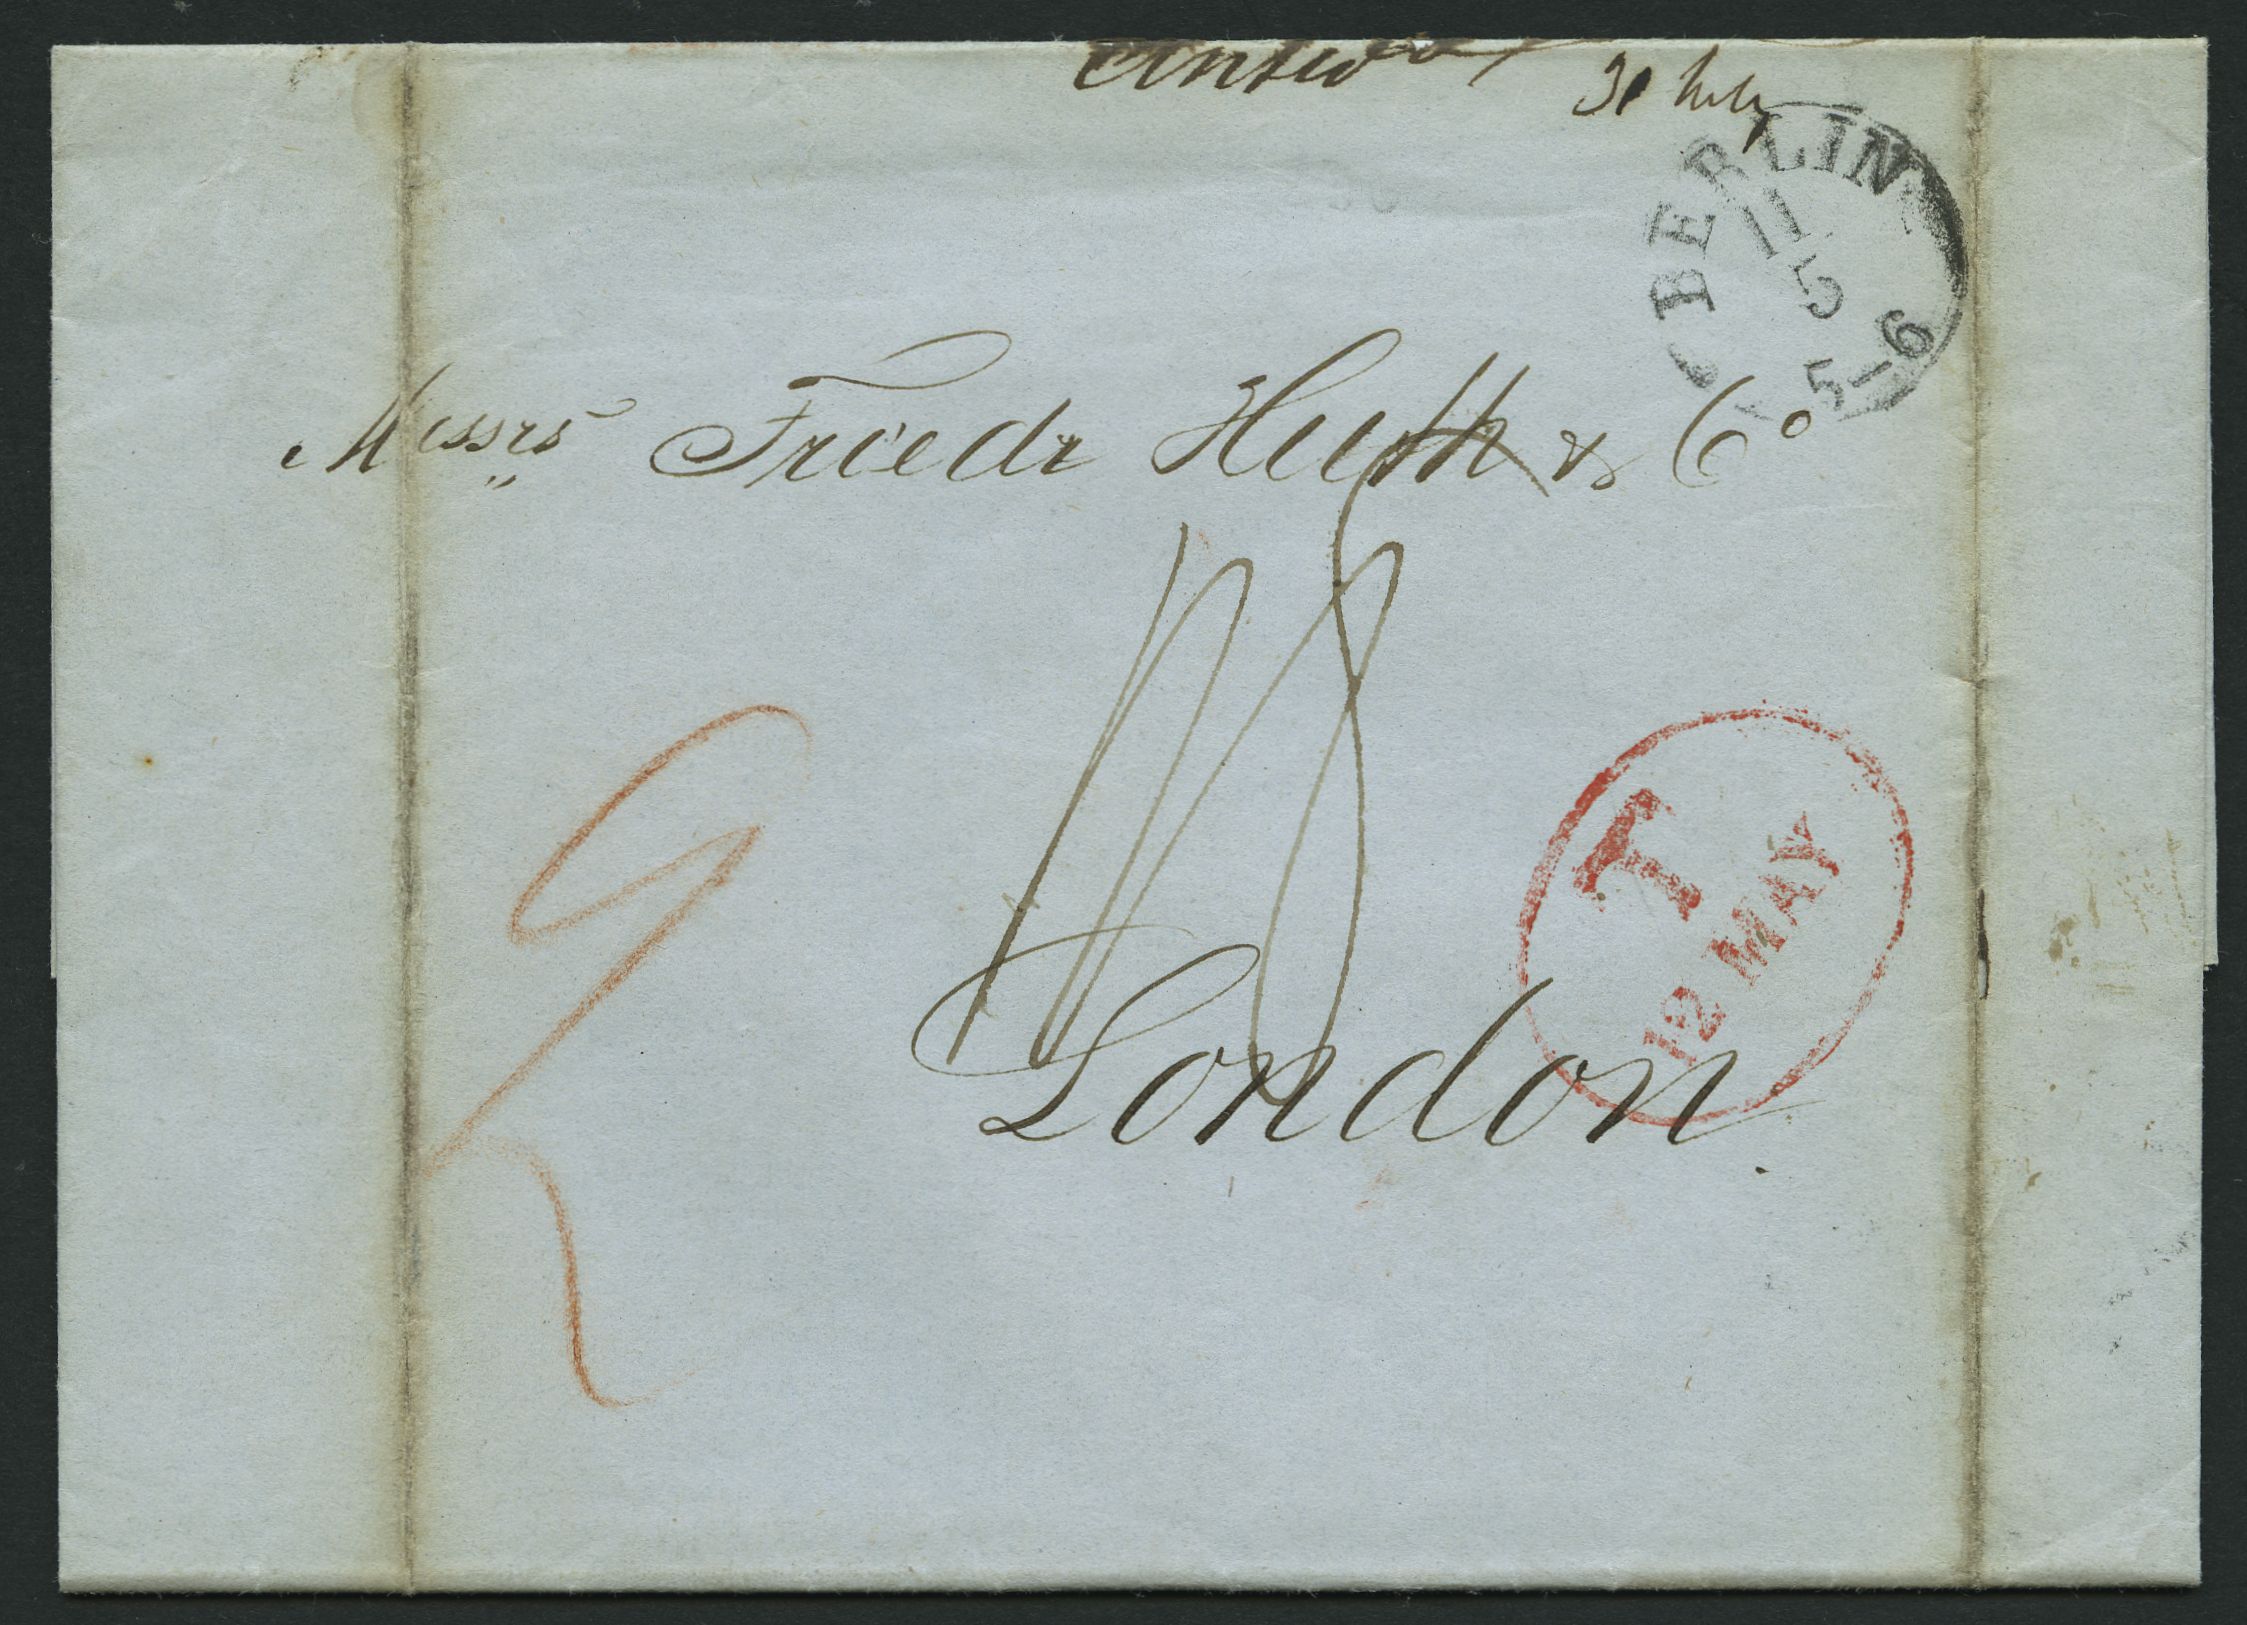 BERLIN
11
5
5-6
Messrs Friedr Huth & Co
118
London.
T
12 MAY